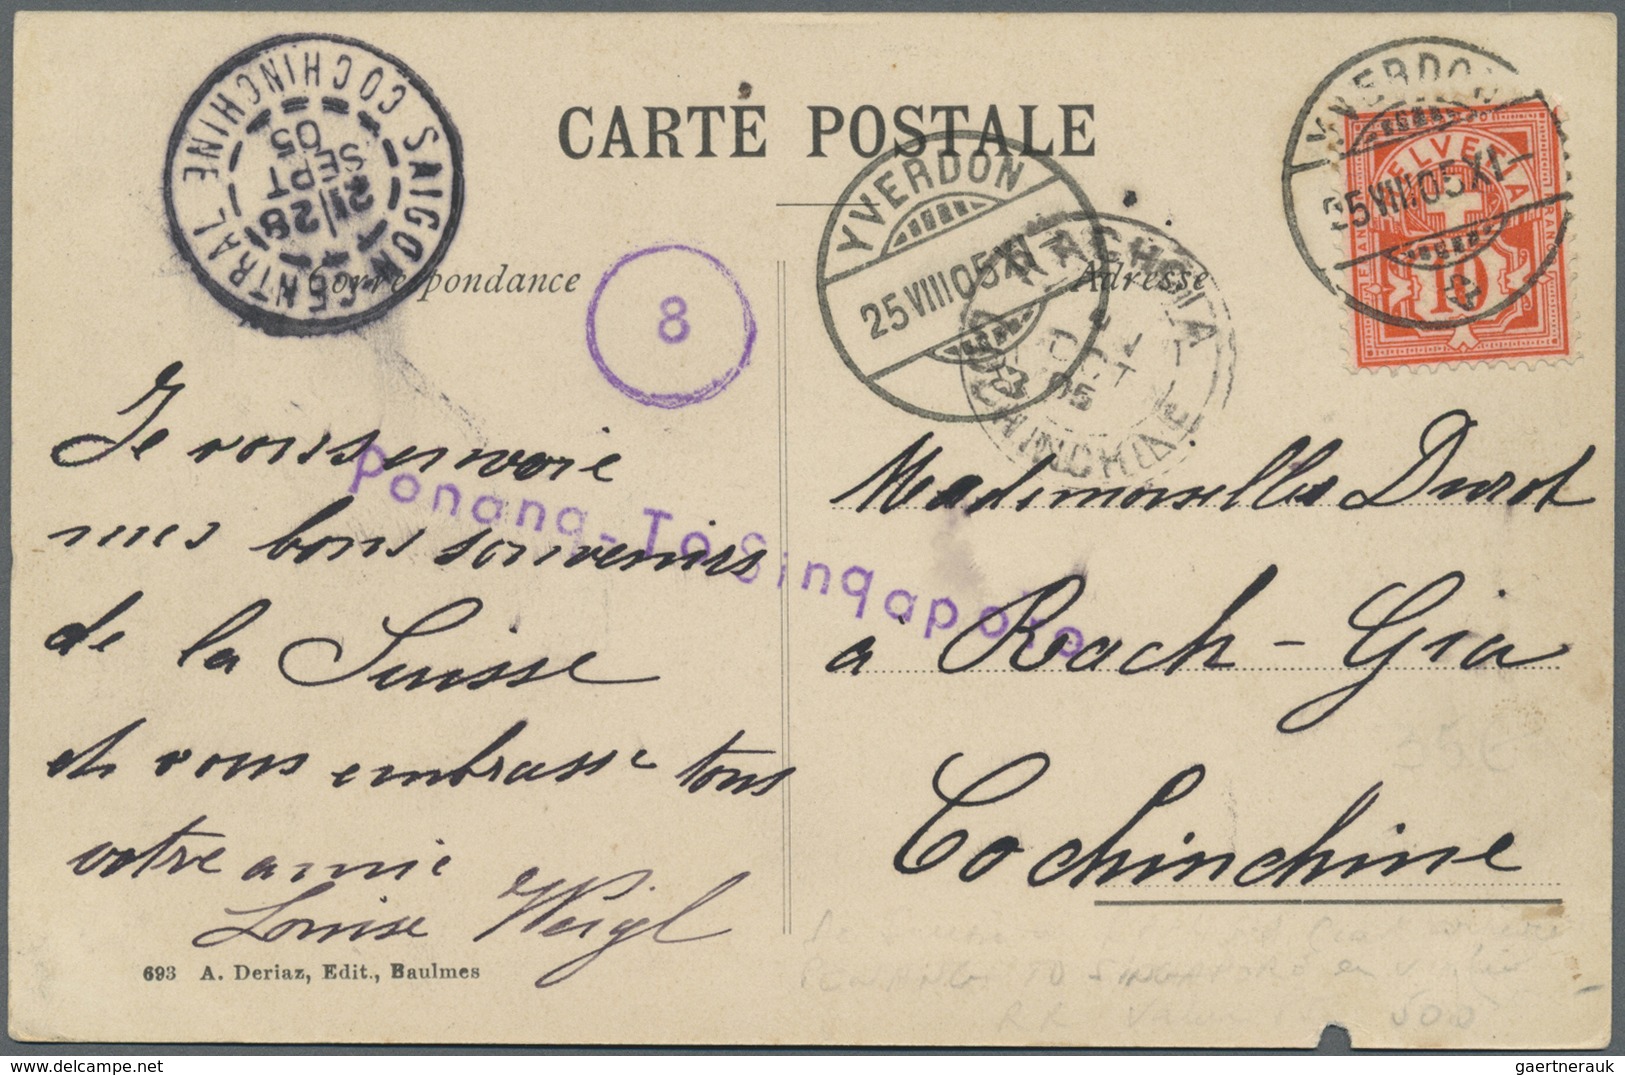 CARTE POSTALE
SAIGON CENTRAL COCHINCHINE
21/28
SEPT
05
YVERDON
25 VIII 05 XI
YVERDON
25 VIII 05 XI
HELVETIA
FRANCO
10
RACHGIA
COCHINCHINE
05
Correspondance
Adresse
8
Penang-To Singapore
Je vous envoie
mes bons souvenirs
de la Suisse
et vous embrasse tous
votre amie
Louise Weigl
Mademoiselle Durot
à Rach-Gia
Cochinchine
693 A. Deriaz, Edit., Baulmes
PENANG TO SINGAPORE en
RR Valeur
500
delcampe.net
gaertnerauk